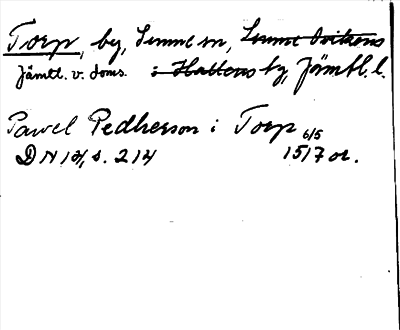 Torp, by, Sunne sn, Sunne Ovikens
Jämtl. v. doms. i Hallens ty, Jämtl. l.
Pawel Pedherson i Torp
DN 14, s. 214 6/5 1517 or.